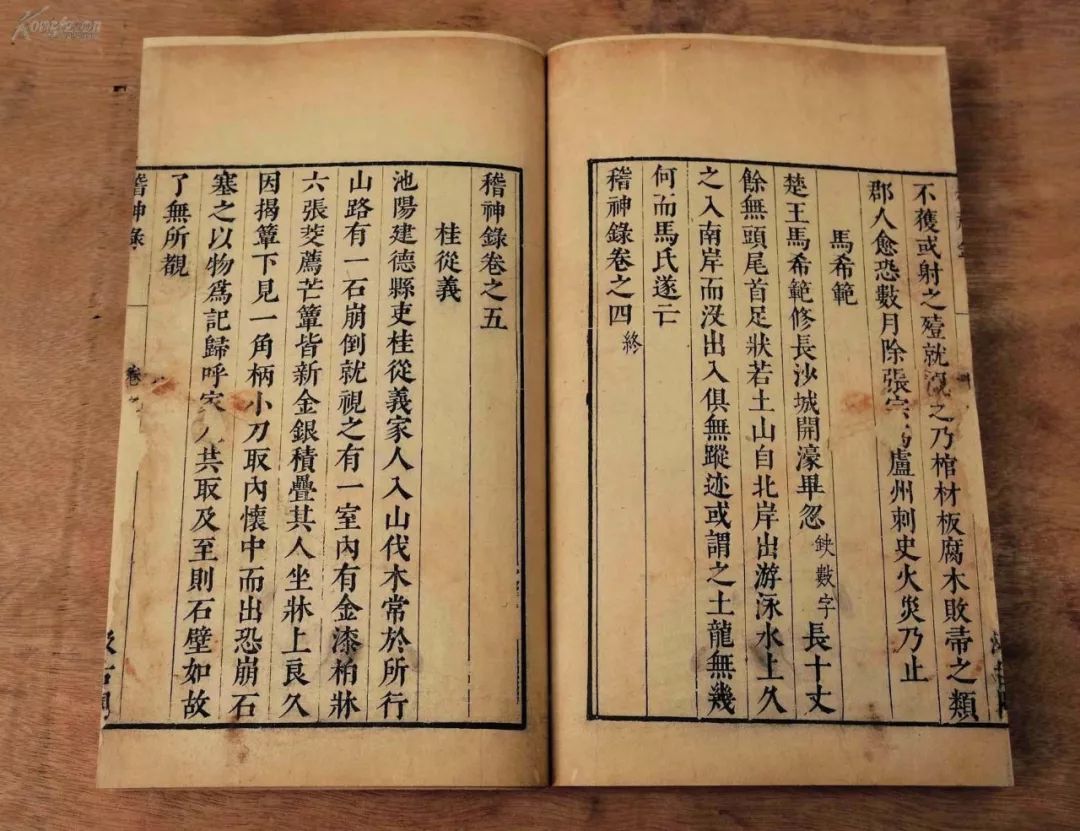 不獲或射之殪就視之乃棺材板腐木敗帚之類
郡人愈恐數月除張宗為廬州刺史火災乃止
馬希範
楚王馬希範修長沙城開濠畢忽 鈌數字 長十丈
餘無頭尾首足狀若土山自北岸出游泳水上久
之入南岸而沒出入俱無蹤迹或謂之土龍無幾
何而馬氏遂亡
稽神錄卷之四 終
稽神錄卷之五
桂從義
池陽建德縣吏桂從義家人入山伐木常於所行
山路有一石崩倒就視之有一室內有金漆柏牀
六張茭薦芒簟皆新金銀積疊其人坐牀上良久
因揭簟下見一角柄小刀取內懷中而出恐崩石
塞之以物爲記歸呼家人共取及至則石壁如故
了無所覩
稽神錄
卷
汲古閣